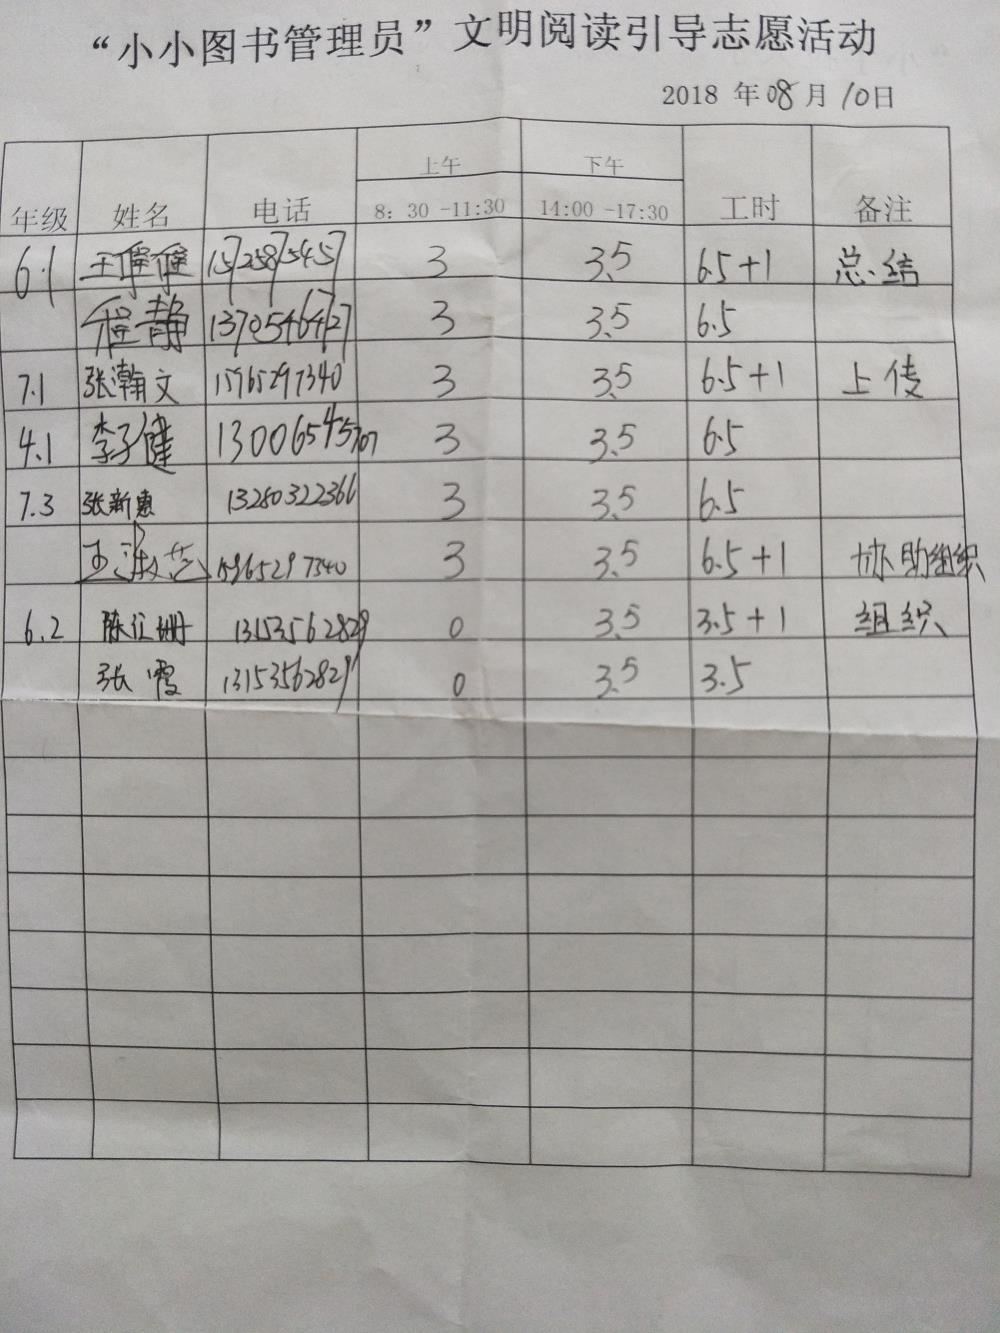 “小小图书管理员”文明阅读引导志愿活动
2018 年 08 月 10 日
年级 姓名 电话 上午 8：30 -11:30 下午 14:00 -17:30 工时 备注
6.1 王 15725875457 3 3.5 6.5+1 总结
静 13705464727 3 3.5 6.5
7.1 张瀚文 15965297340 3 3.5 6.5+1 上传
4.1 李子健 13006545707 3 3.5 6.5
7.3 张新惠 13280322366 3 3.5 6.5
王淑芸 15965297340 3 3.5 6.5+1 协助组织
6.2 陈 13153562829 0 3.5 3.5+1 组织
张霞 13153562829 0 3.5 3.5